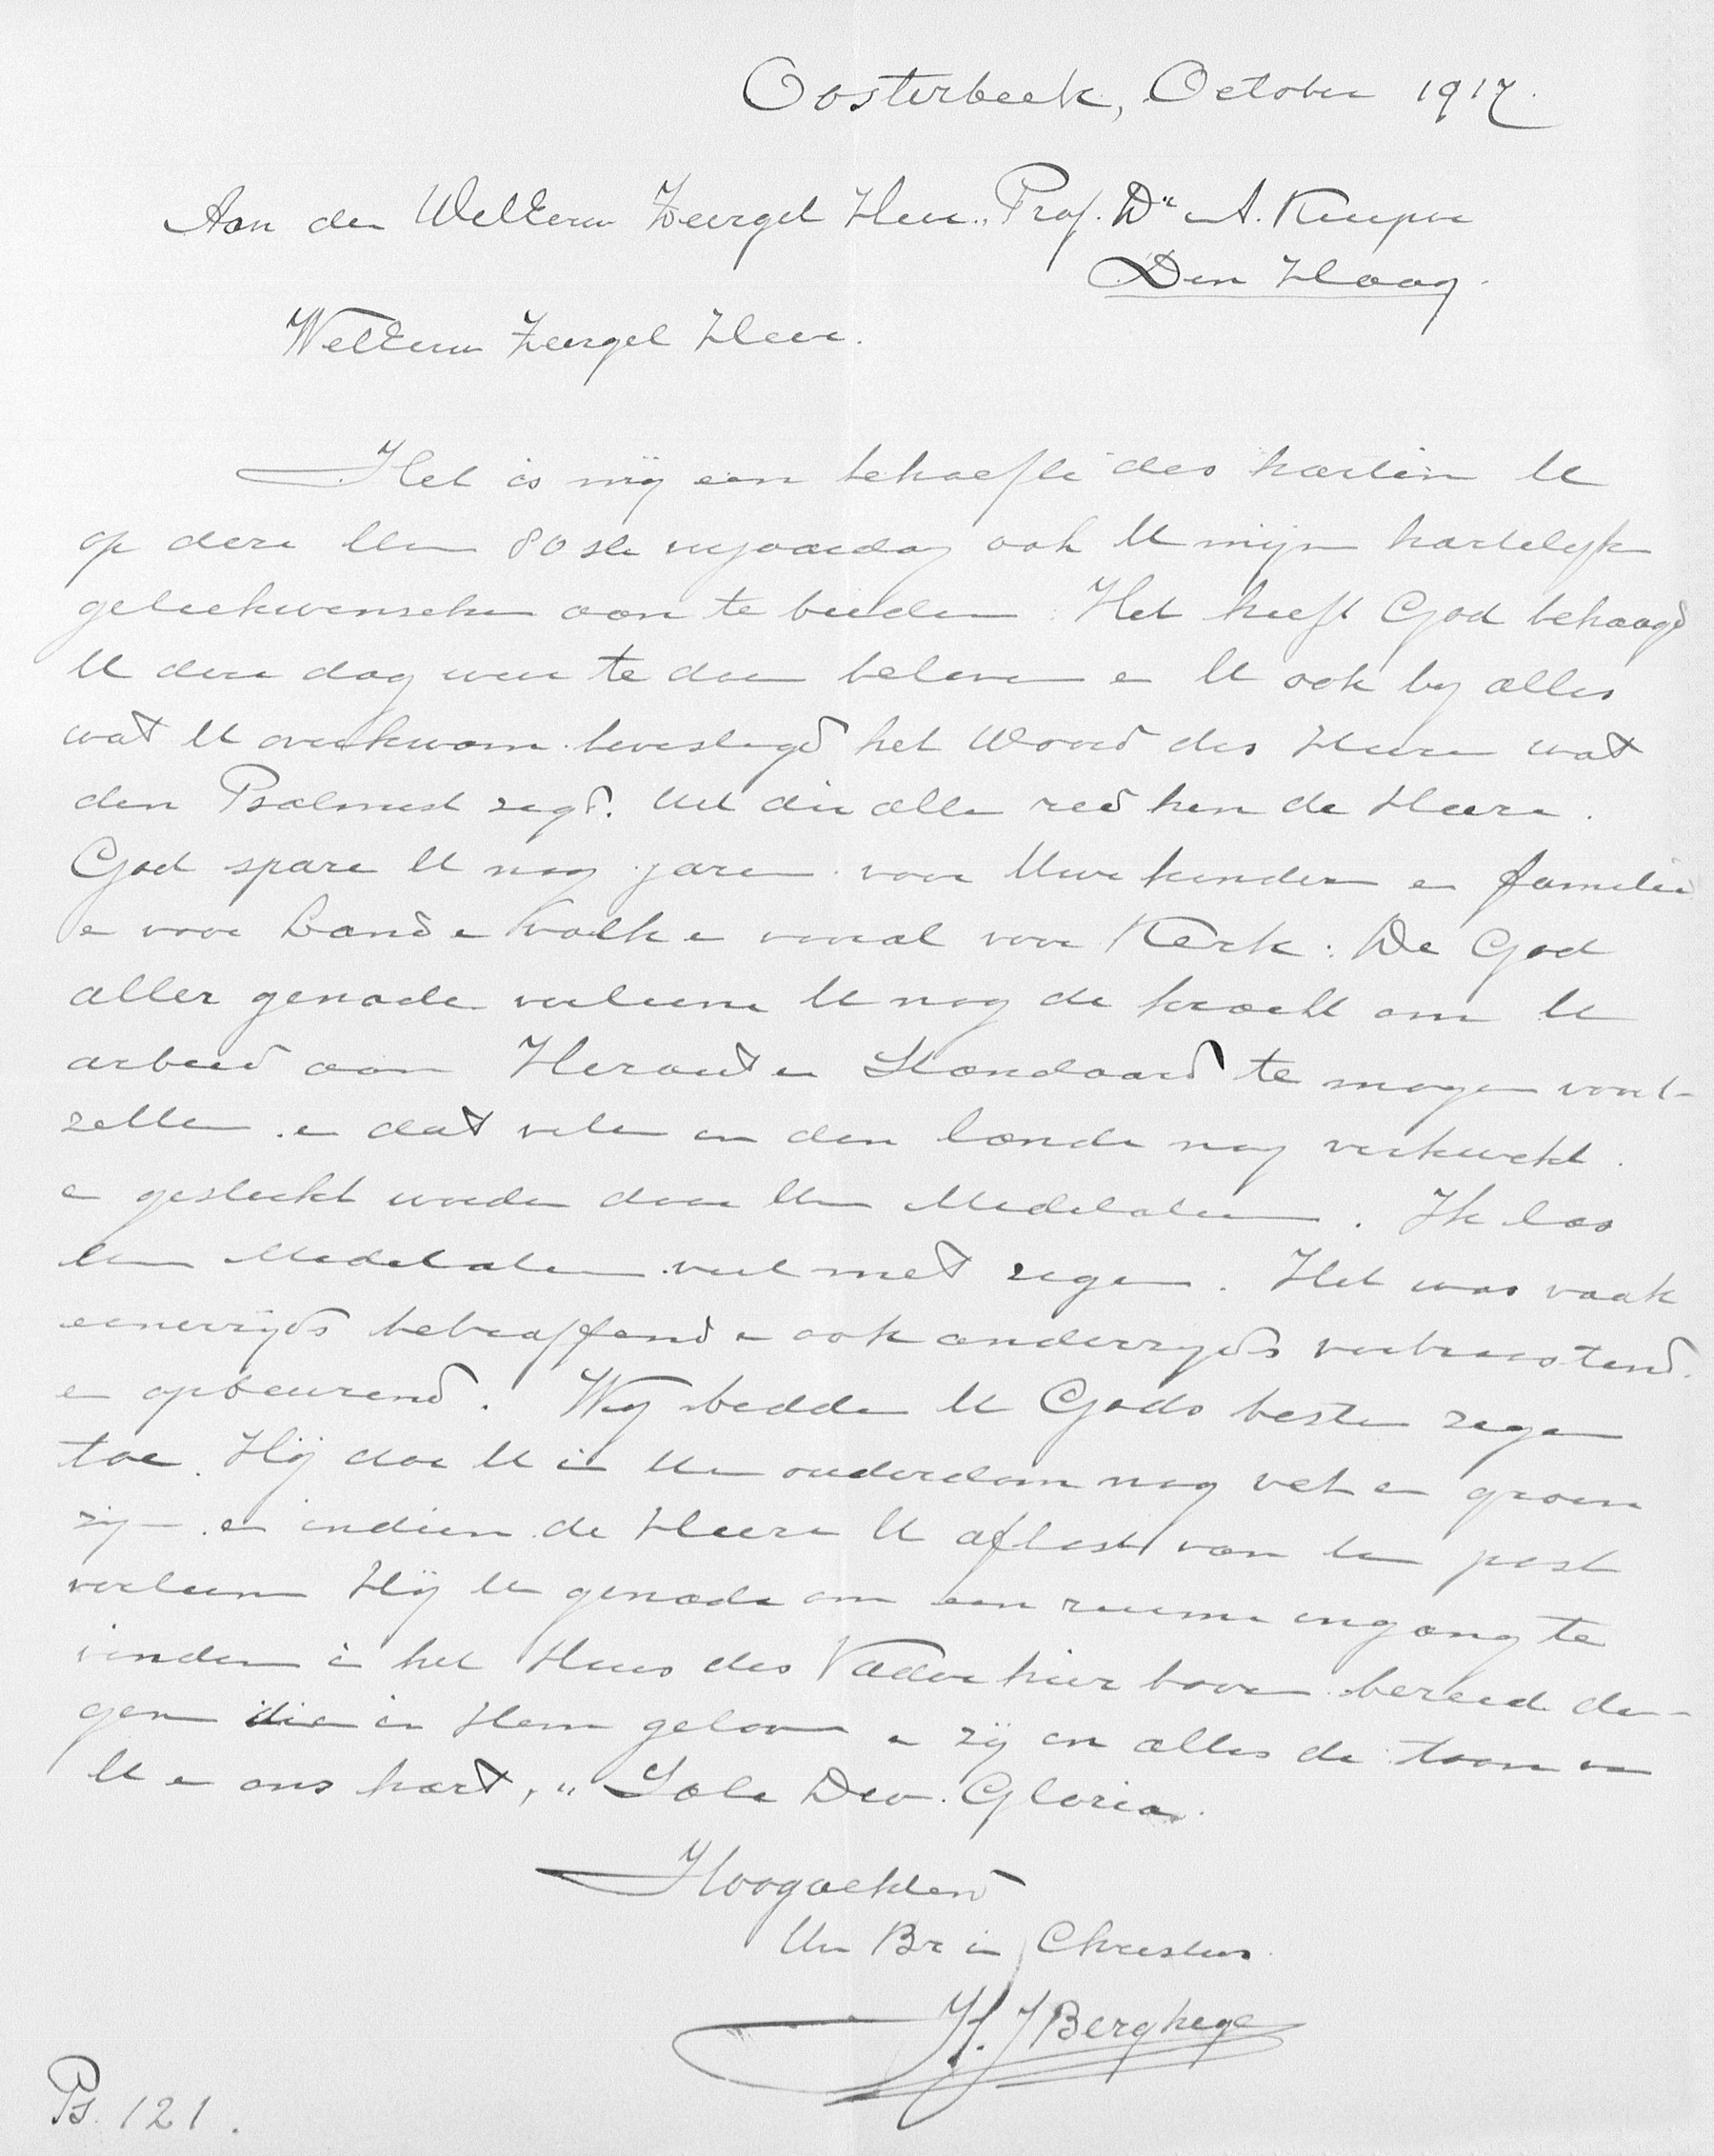 Oosterbeek, October 1917.
Aan den WelEerw Zeergel Heer. Prof. Dr A. Kuyper
Den Haag.
WelEerw Zeergel Heer.
Het is mij een behoefte des harten U
op deze Uw 80ste verjaardag ook U mijn hartelijk
gelukwenschen aan te bieden. Het heeft God behaagd
U deze dag weer te doen beleven en U ook by alles
wat U overkwam bevestigd het Woord des Heeren wat
den Psalmist zegd. Uit die alle red hen de Heere.
God spare U nog jaren voor Uwe kinderen en familie
en voor Land en Volk en vooral voor Kerk: De God
aller genade verleene U nog de kracht om U
arbeid aan Heraut en Standaard te mogen voort-
zetten en dat velen in den lande nog verkwikt
en gesterkt worden door Uw Meditatien. Ik las
Uw Meditatien veel met zegen. Het was vaak
eenerzyds bestraffend en ook anderzyds vertroostend
en opbeurend. Wij bidden U Gods besten zegen
toe. Hij doe U in Uw ouderdom nog vet en groen
zijn en indien de Heere U aflost van Uw post
verleene Hij U genade om een ruime ingang te
vinden in het Huis des Vaders hier boven bereid de-
gene die in Hem geloven en zij in alles de toon van
U en ons hart, „Sola Deo Gloria.
Hoogachtend
Uw Br in Christus
H. J Berghege
Ps. 121.